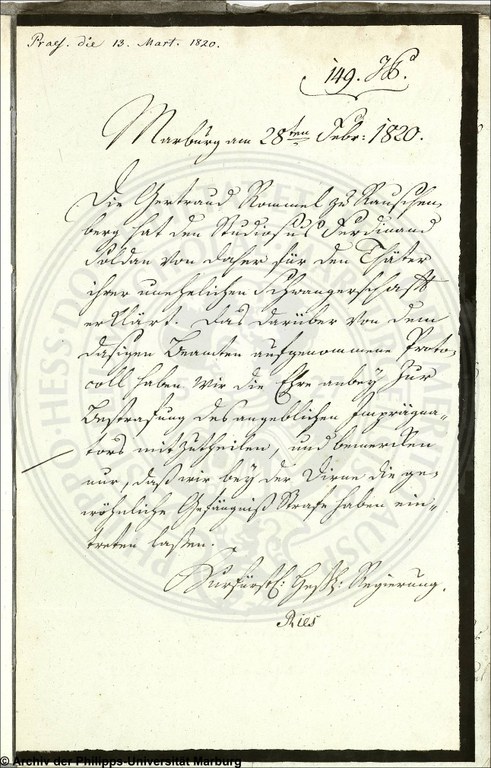 Praes. die 13. Mart. 1820.
149. H.
Marburg am 28ten Febr: 1820.
Die Gertraud Rommel zu Rauschen-
berg hat den Studiosus Ferdinand
Soldan von daher für den Thäter
ihrer unehelichen Schwangerschaft
erklärt. Das darüber von dem
dasigen Beamten aufgenommene Proto-
coll haben wir die Ehre anbey, zur
Bestrafung des angeblichen Impraegna-
tors mitzutheilen, und bemerken
nur, daß wir bey der Dirne die ge-
wöhnliche Gefängniß Strafe haben ein-
treten lassen.
Kurfürstl: Hess: Regierung.
Ries
© Archiv der Philipps-Universität Marburg